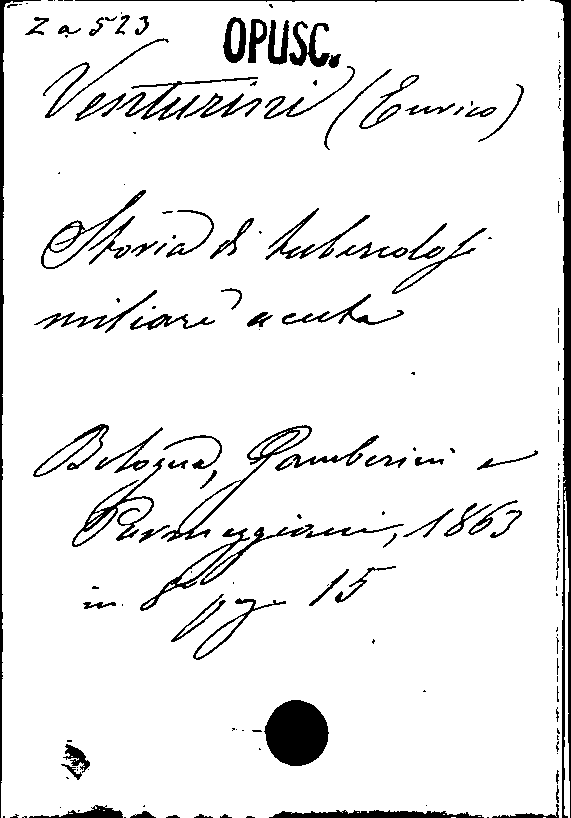 Z a 523
OPUSC.
Venturini (Enrico)
Storia di tubercolosi
miliare acuta
Bologna, Gamberini e
Parmeggiani, 1863
in 8° pag. 15